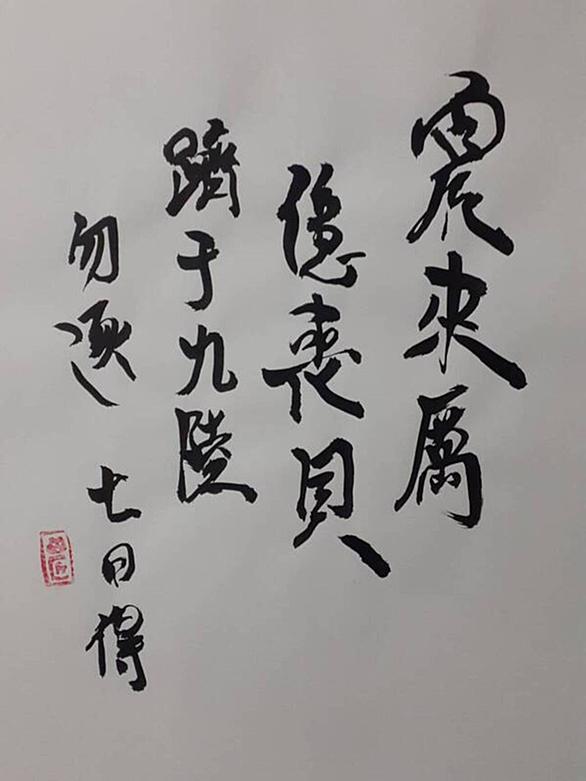 震來厲
億喪貝
躋于九陵
勿逐 七日得